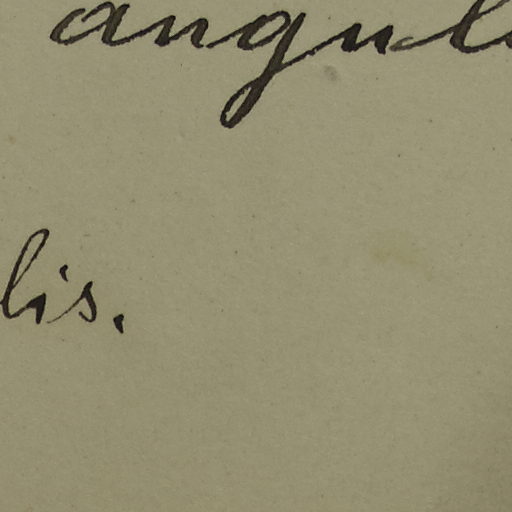 angul
lis.